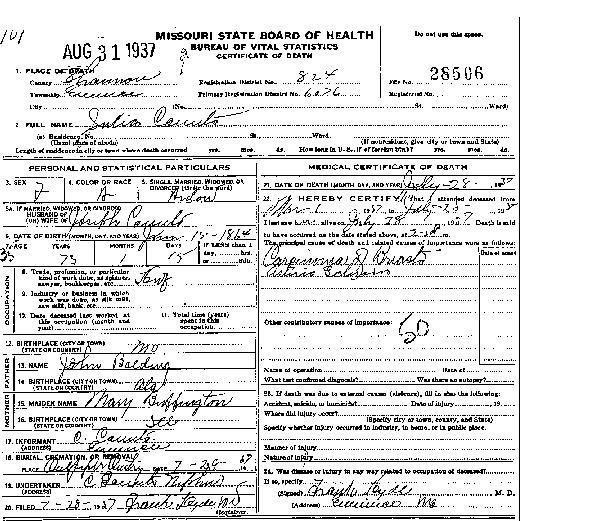 101
MISSOURI STATE BOARD OF HEALTH
BUREAU OF VITAL STATISTICS
CERTIFICATE OF DEATH
Do not use this space.
AUG 31 1937
1. PLACE OF DEATH
County Shannon
Registration District No. 824
File No. 28506
Township Eminence
Primary Registration District No. 6076
Registered No.
City (No. St. Ward)
2. FULL NAME Julia
(a) Residence, No. St. Ward.
(Usual place of abode) (If nonresident, give city or town and State)
Length of residence in city or town where death occurred yrs. mos. ds. How long in U.S., if of foreign birth? yrs. mos. ds.
PERSONAL AND STATISTICAL PARTICULARS
3. SEX 4. COLOR OR RACE 5. SINGLE, MARRIED, WIDOWED, OR DIVORCED (write the word)
Widow
5A. IF MARRIED, WIDOWED, OR DIVORCED
HUSBAND OF
(OR) WIFE OF Joseph
6. DATE OF BIRTH (MONTH, DAY, AND YEAR) 15-1864
7. AGE YEARS MONTHS DAYS If LESS than 1 day, hrs. or min.
73 1
OCCUPATION
8. Trade, profession, or particular kind of work done, as spinner, sawyer, bookkeeper, etc.
9. Industry or business in which work was done, as silk mill, saw mill, bank, etc.
10. Date deceased last worked at this occupation (month and year)
11. Total time (years) spent in this occupation
12. BIRTHPLACE (CITY OR TOWN) Mo
(STATE OR COUNTRY)
FATHER
13. NAME John
14. BIRTHPLACE (CITY OR TOWN) Ala
(STATE OR COUNTRY)
MOTHER
15. MAIDEN NAME Mary Buffington
16. BIRTHPLACE (CITY OR TOWN) Ill
(STATE OR COUNTRY)
17. INFORMANT C.
(ADDRESS) Eminence
18. BURIAL, CREMATION, OR REMOVAL
PLACE DATE 7-29 37
19. UNDERTAKER C.
(ADDRESS)
20. FILED 7-28-1937 Frank Hyde MD
Registrar.
MEDICAL CERTIFICATE OF DEATH
21. DATE OF DEATH (MONTH, DAY, AND YEAR) July-28- 1937
22. I HEREBY CERTIFY, That I attended deceased from
Mar-1 1937 to July-28 1937
I last saw h alive on July 28 1937 Death is said
to have occurred on the date stated above, at m.
The principal cause of death and related causes of importance were as follows:
Date of onset
Carcinoma of Breast
Other contributory causes of importance:
50
Name of operation Date of
What test confirmed diagnosis? Was there an autopsy?
23. If death was due to external causes (violence), fill in also the following:
Accident, suicide, or homicide? Date of injury 19
Where did injury occur?
(Specify city or town, county, and State)
Specify whether injury occurred in industry, in home, or in public place.
Manner of injury
Nature of injury
24. Was disease or injury in any way related to occupation of deceased?
If so, specify
(Signed) Frank Hyde M. D.
(Address) Eminence Mo